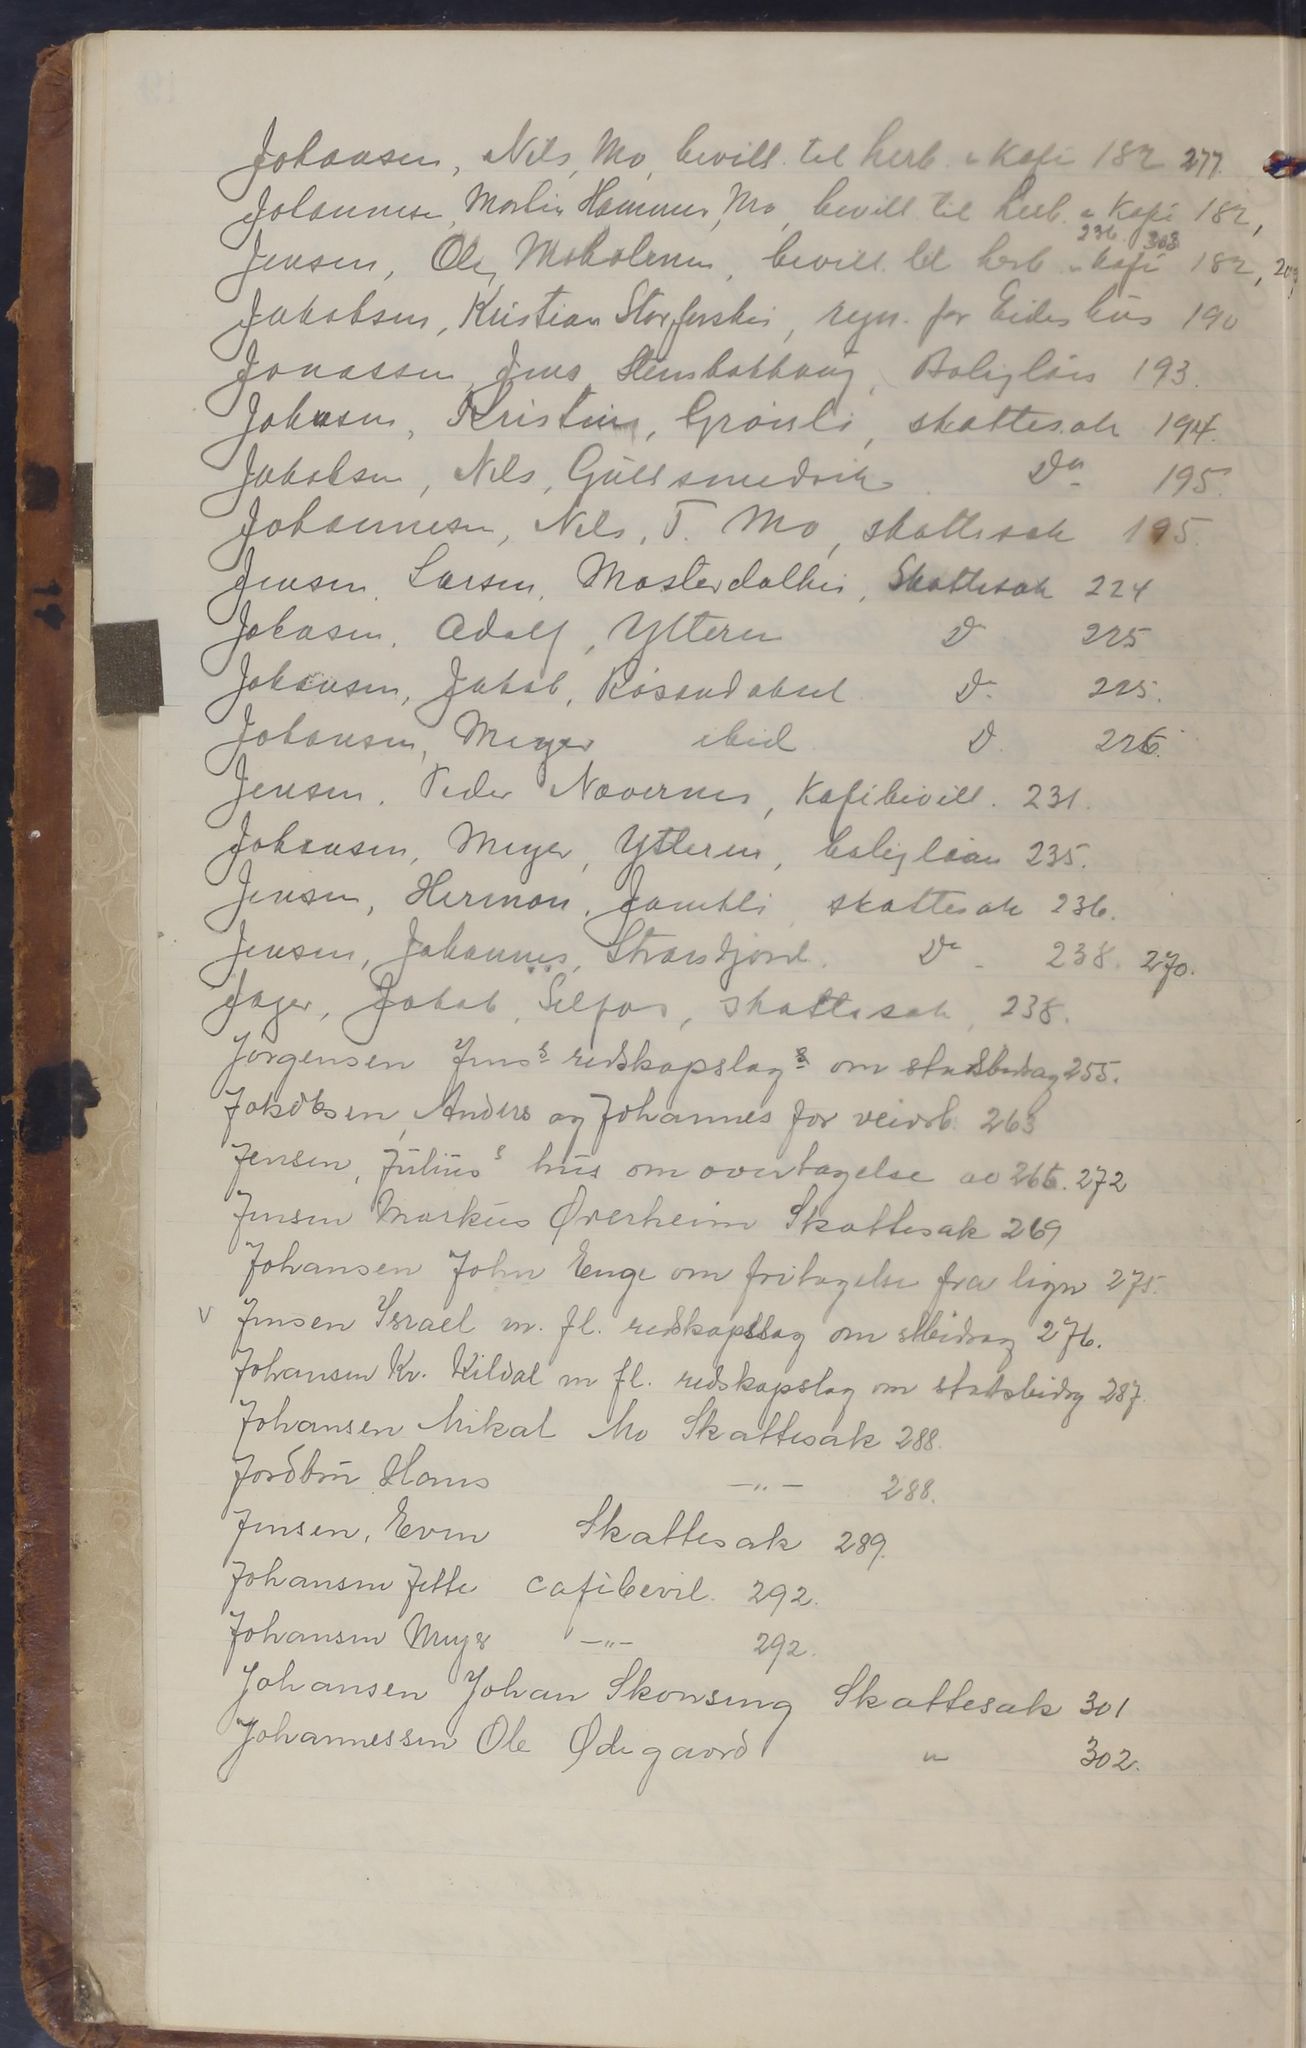 Johansen, Nils, Mo, bevill. til herb. & Kafe 182 277.
Johannesen, Martin Hammer, Mo, bevill. til herb. & Kafe 182,
236. 303
Jensen, Ole, Moholmen, bevill. til herb. & Kafe 182, 203,
Jakobsen, Kristian Storforshei, regn. for Eides hus 190
Jonassen, Jens Stenbakhaug, Boliglån 193.
Johnsen, Kristine, Grönli, skattesak 194.
Jakobsen, Nils, Gullsmedvik Do 195.
Johannesen, Nils, T. Mo, skattesak 195.
Jensen, Larsen, Skattesak 224
Johansen, Adolf, Ytteren D 225
Johansen, Jakob, D. 225.
Johansen, Meyer ibid D. 226.
Jensen, Peder Nævernes, Kafebevill. 231.
Johansen, Meyer, Ytteren, boliglån 235.
Jensen, Herman, Jamtli skattesak 236.
Jensen, Johannes, Straisdjord. Do 238. 270.
Jager, Jakob, Selfos, skattesak, 238.
Jörgensen Jens's redskapslag's om statsbidrag 255.
Jakobsen, Anders og Johannes for veiarb. 263
Jensen, Julius's hus om overtagelse av 266. 272
Jensen Markus Øverheim Skattesak 269
Johansen John Enge om fritagelse fra lign 275.
v Jensen Israel m. fl. redskapslag om stbidrag 276.
Johansen Kr. Kildal m fl. redskapslag om statsbidrg 287.
Johansen Mikal Mo Skattesak 288.
Jordbru Hans —"— 288.
Jensen, Even Skattesak 289.
Johansen Jette cafebevil. 292.
Johansen Meyer —"— 292.
Johansen Johan Skonseng Skattesak 301
Johannessen Ole Ødegaard " 302.